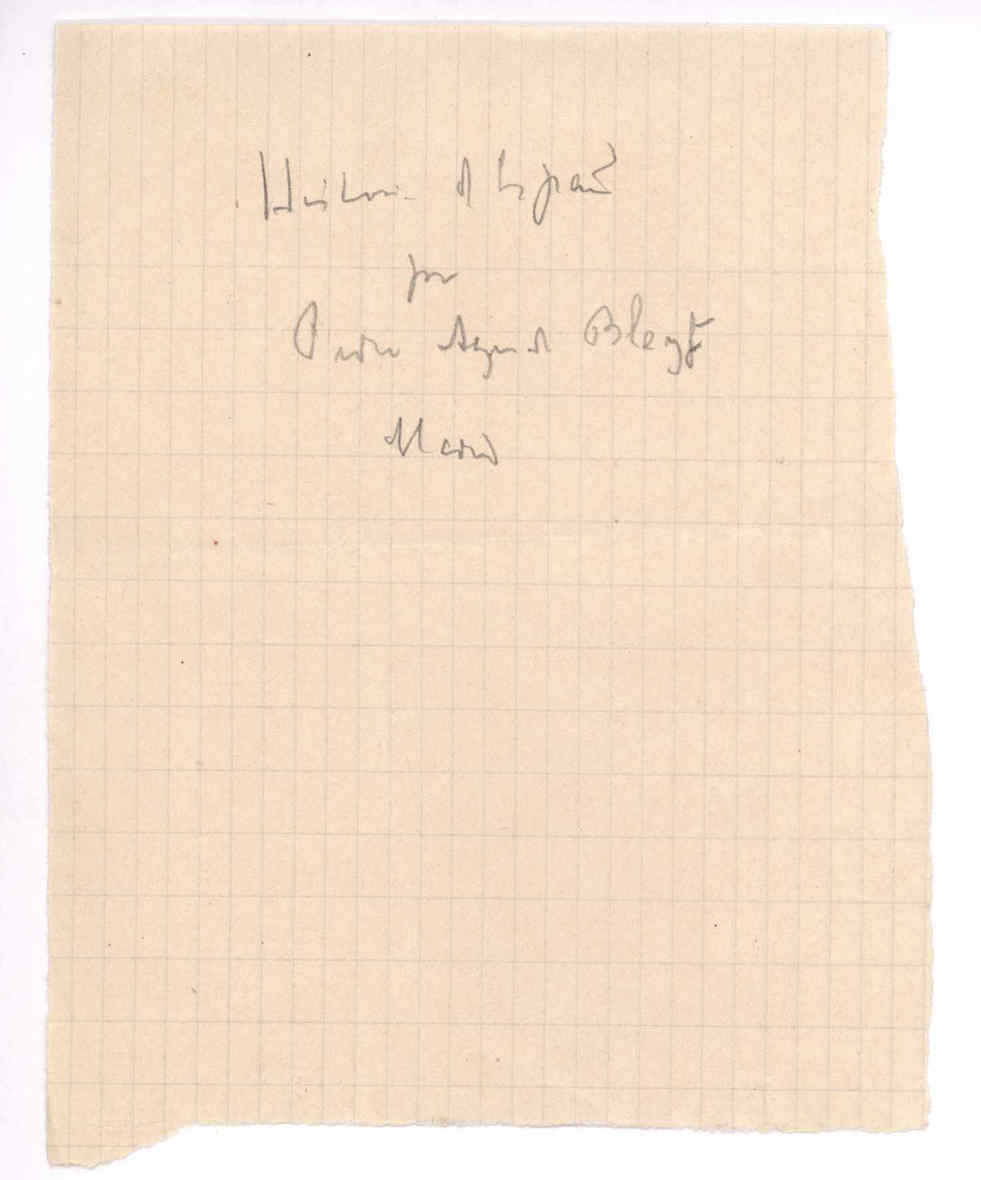 Historia de España
por
Pedro Aguado Bleye
Madrid